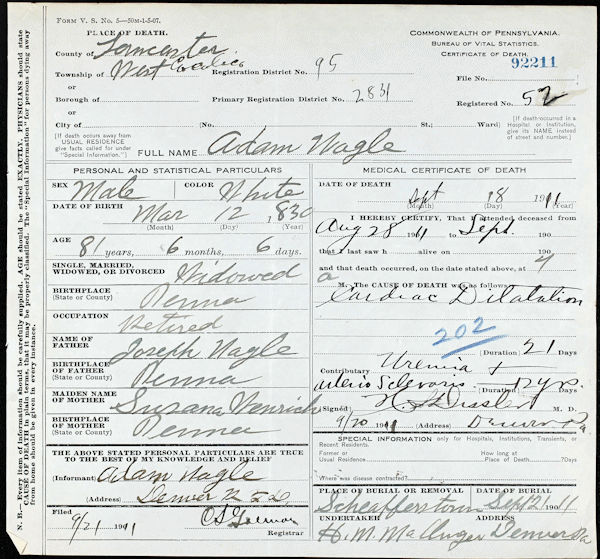 FORM V. S. No. 5—50M-1-5-07.
PLACE OF DEATH.
County of Lancaster
Township of West Cocalico
or
Borough of
or
City of (No. St.; Ward)
Registration District No. 95
Primary Registration District No. 2831
COMMONWEALTH OF PENNSYLVANIA.
BUREAU OF VITAL STATISTICS.
CERTIFICATE OF DEATH.
92211
File No.
Registered No. 52
[If death occurs away from USUAL RESIDENCE give facts called for under "Special Information."]
[If death occurred in a Hospital or Institution, give its NAME instead of street and number.]
FULL NAME Adam Nagle
PERSONAL AND STATISTICAL PARTICULARS
SEX Male COLOR White
DATE OF BIRTH Mar 12 1830
(Month) (Day) (Year)
AGE 81 years, 6 months, 6 days.
SINGLE, MARRIED, WIDOWED, OR DIVORCED Widowed
BIRTHPLACE (State or County) Penna
OCCUPATION Retired
NAME OF FATHER Joseph Nagle
BIRTHPLACE OF FATHER (State or County) Penna
MAIDEN NAME OF MOTHER Suzana Henrich
BIRTHPLACE OF MOTHER (State or County) Penna
THE ABOVE STATED PERSONAL PARTICULARS ARE TRUE
TO THE BEST OF MY KNOWLEDGE AND BELIEF
(Informant) Adam Nagle
(Address) Denver
Filed 9/21 1911
Registrar
MEDICAL CERTIFICATE OF DEATH
DATE OF DEATH Sept 18 1911
(Month) (Day) (Year)
I HEREBY CERTIFY, That I attended deceased from
Aug 28 1911 to Sept. 190
that I last saw h alive on 190
and that death occurred, on the date stated above, at 4
a M. The CAUSE OF DEATH was as follows:
Cardiac Dilatation
202
(Duration) 21 Days
Contributory Uremia +
(Duration)
(Signed) M. D.
9/20 1911 (Address) Denver Pa
SPECIAL INFORMATION only for Hospitals, Institutions, Transients, or Recent Residents.
Former or Usual Residence
How long at Place of Death? Days
Where was disease contracted?
PLACE OF BURIAL Schaefferstown
DATE OF BURIAL Sept 21 1911
UNDERTAKER
ADDRESS Denver Pa
N. B.—Every item of information should be carefully supplied. AGE should be stated EXACTLY. PHYSICIANS should state
CAUSE OF DEATH in plain terms, that it may be properly classified. The "Special Information" for persons dying away
from home should be given in every instance.